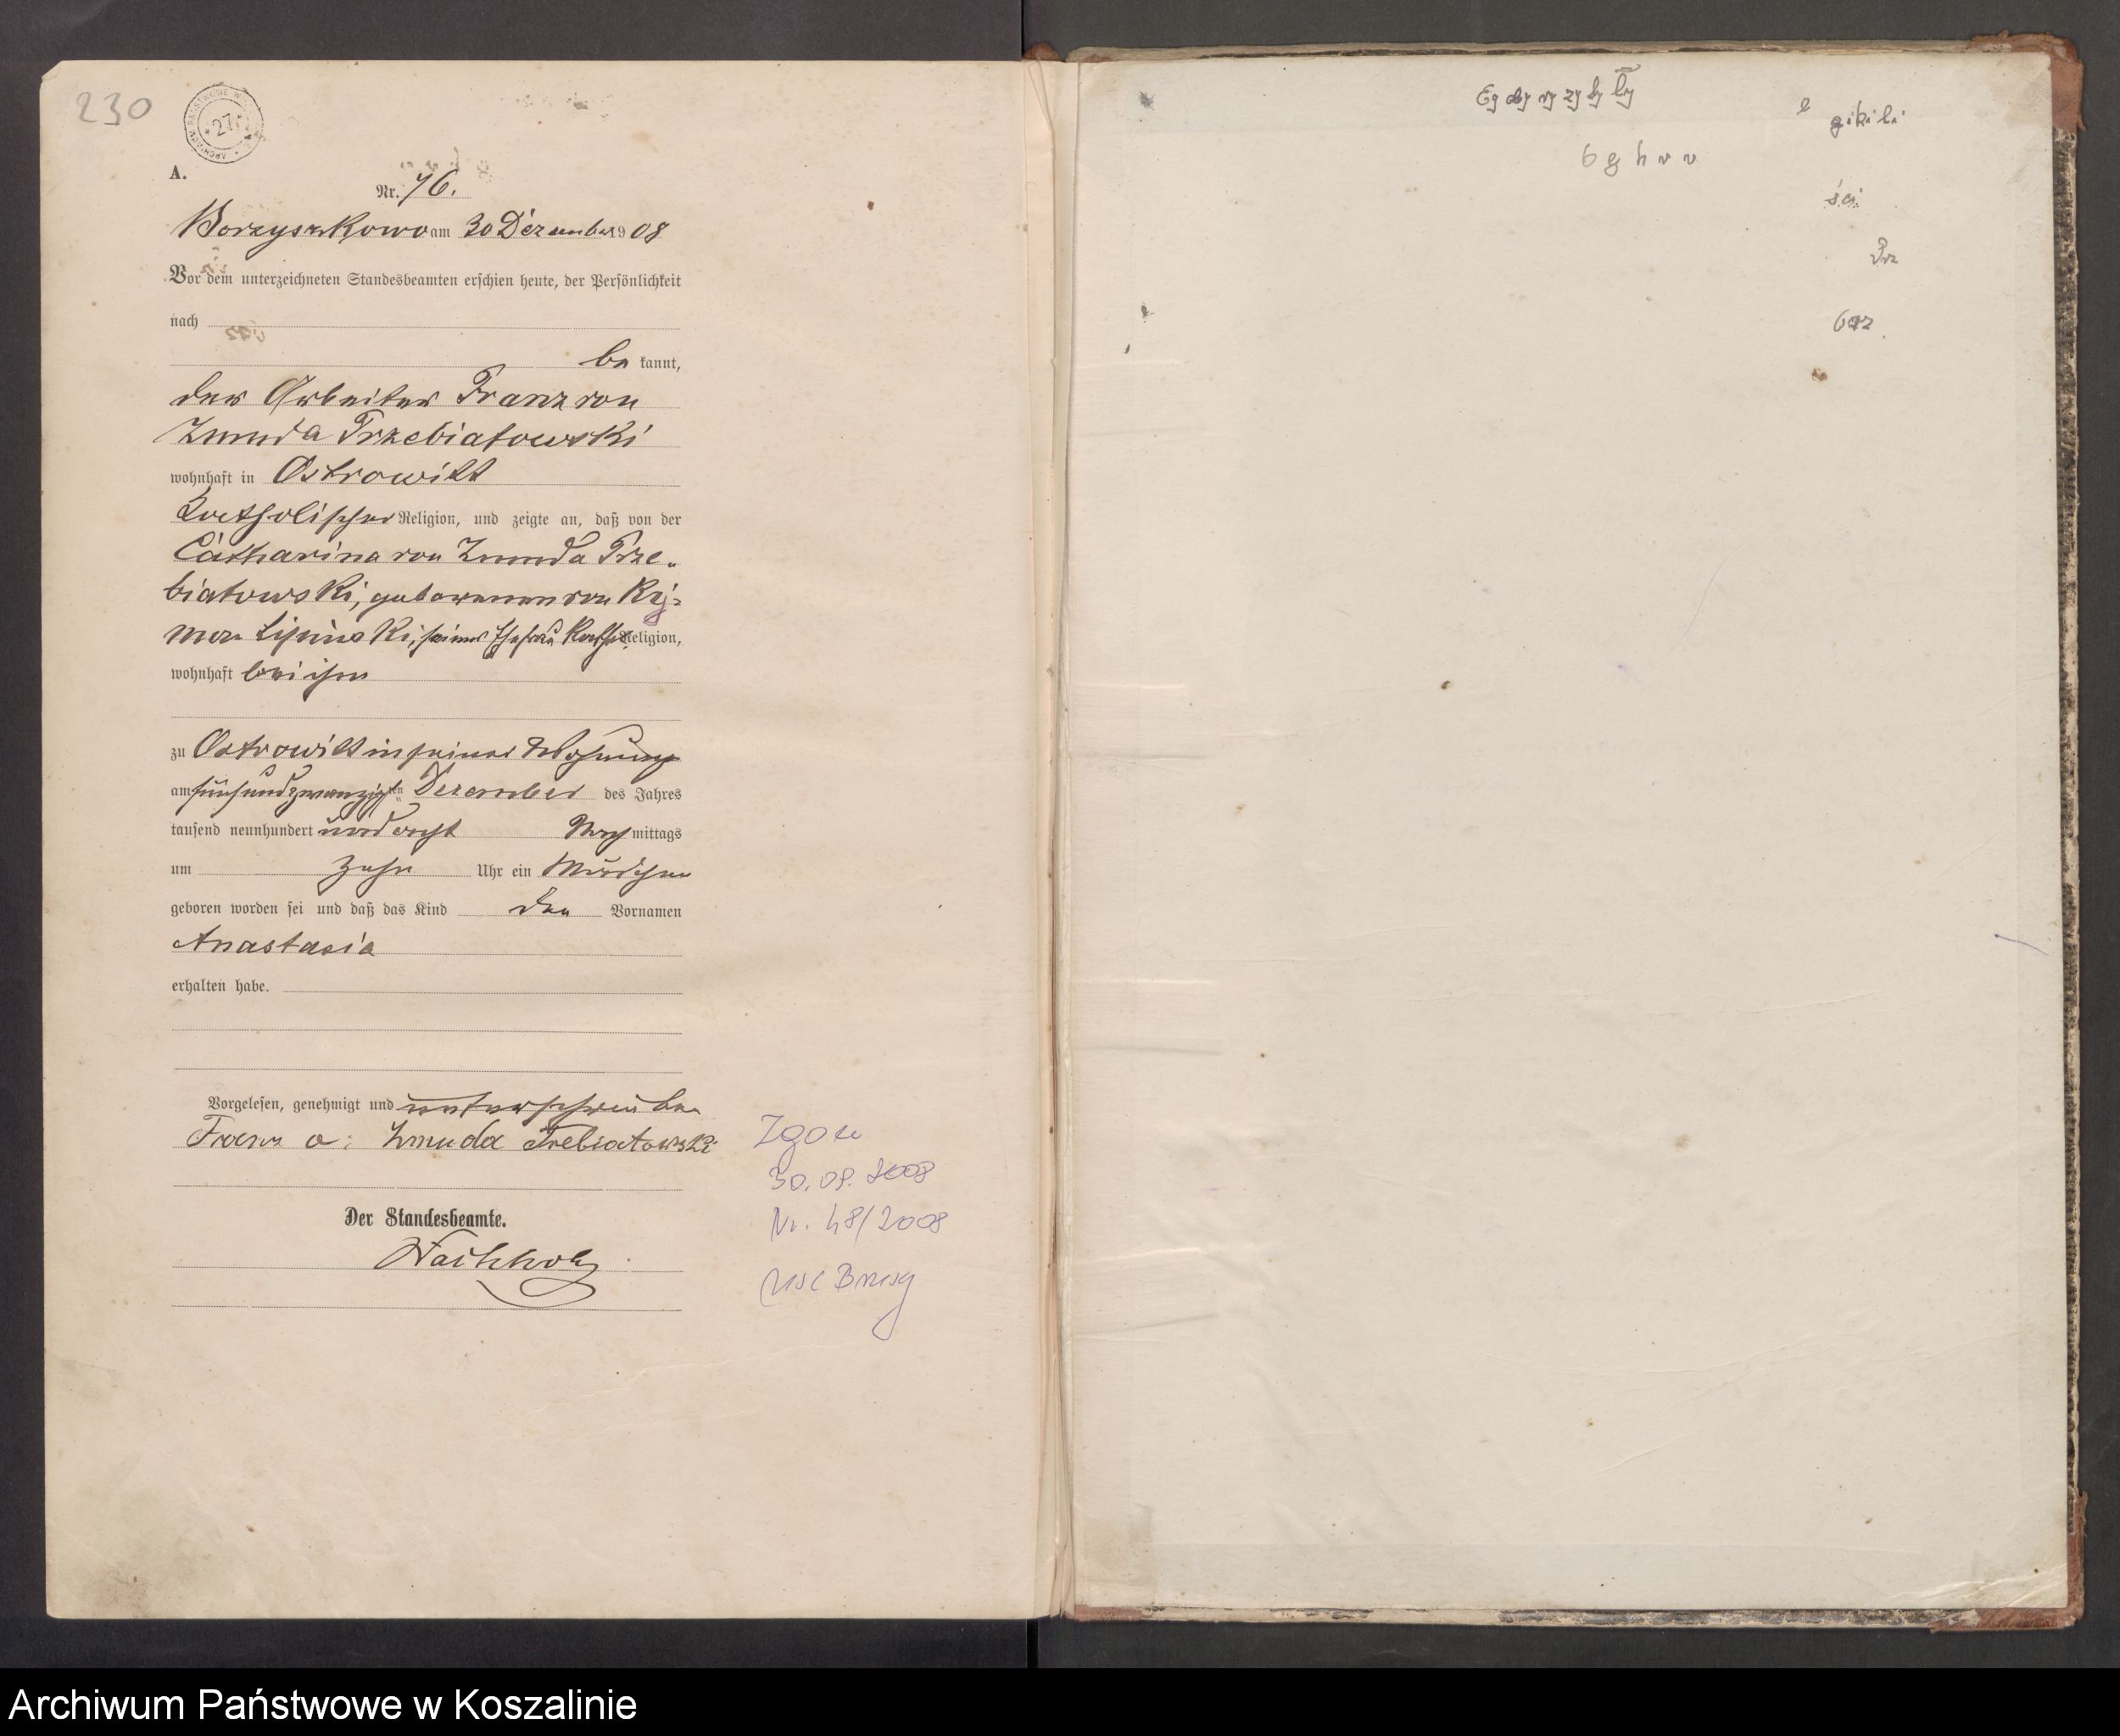 230
27
A.
Nr. 76.
Borzyszkowo am 30 Dezember 1908
Vor dem unterzeichneten Standesbeamten erschien heute, der Persönlichkeit
nach
be kannt,
der Arbeiter Franz von
Zmuda Trzebiatowski
wohnhaft in Ostrowitt
katholischer Religion, und zeigte an, daß von der
Catharina von Zmuda Trze-
biatowski, geborenen von
Lipinski, seiner Ehefrau kath. Religion,
wohnhaft bei ihm
zu Ostrowitt in seiner Wohnung
am fünfundzwanzigsten Dezember des Jahres
tausend neunhundert und acht Nachmittags
um zehn Uhr ein Mädchen
geboren worden sei und daß das Kind den Vornamen
Anastasia
erhalten habe.
Vorgelesen, genehmigt und unterschrieben
Franz Zmuda Trebiatowski
Der Standesbeamte.
Zgon
30.09.2008
Nr. 48/2008
USC Brusy
gi ki li
b g h v v
ści
Archiwum Państwowe w Koszalinie